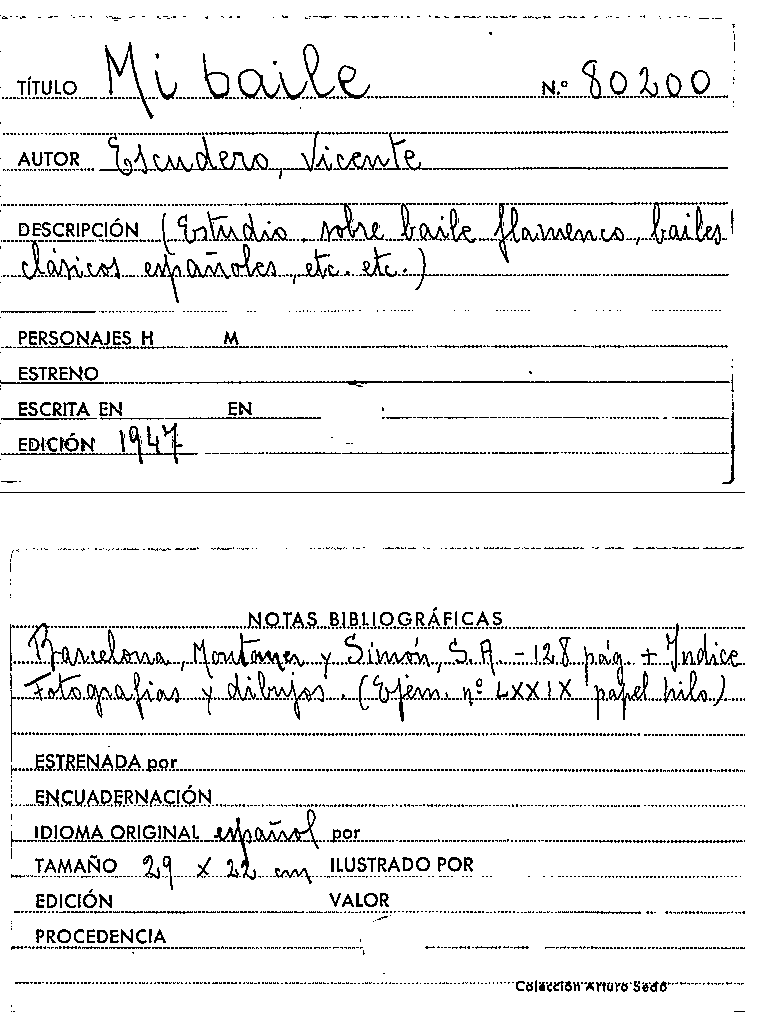 TÍTULO Mi baile N.º 80200
AUTOR Escudero, Vicente
DESCRIPCIÓN (Estudio sobre baile flamenco, bailes
clásicos españoles, etc. etc.)
PERSONAJES H M
ESTRENO
ESCRITA EN EN
EDICIÓN 1947
NOTAS BIBLIOGRÁFICAS
Barcelona, Montaner y Simón, S.A. - 128 pág. + Indice
Fotografias y dibujos. (Ejem. nº LXXIX papel hilo)
ESTRENADA por
ENCUADERNACIÓN
IDIOMA ORIGINAL español por
TAMAÑO 29 x 22 cm ILUSTRADO POR
EDICIÓN VALOR
PROCEDENCIA
Colección Arturo Sedó